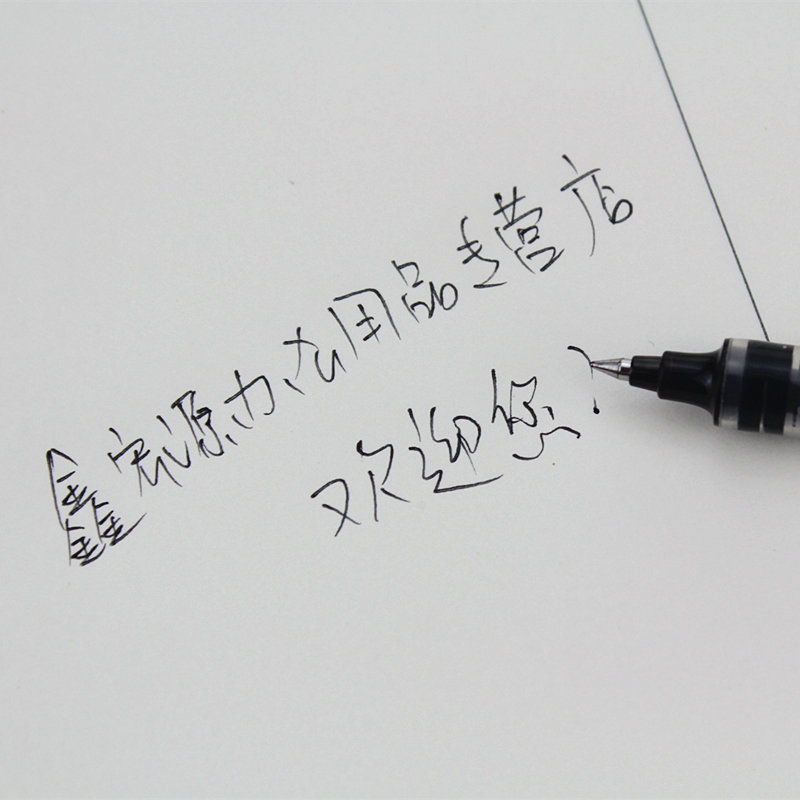 鑫宏源办公用品专营店
欢迎您!